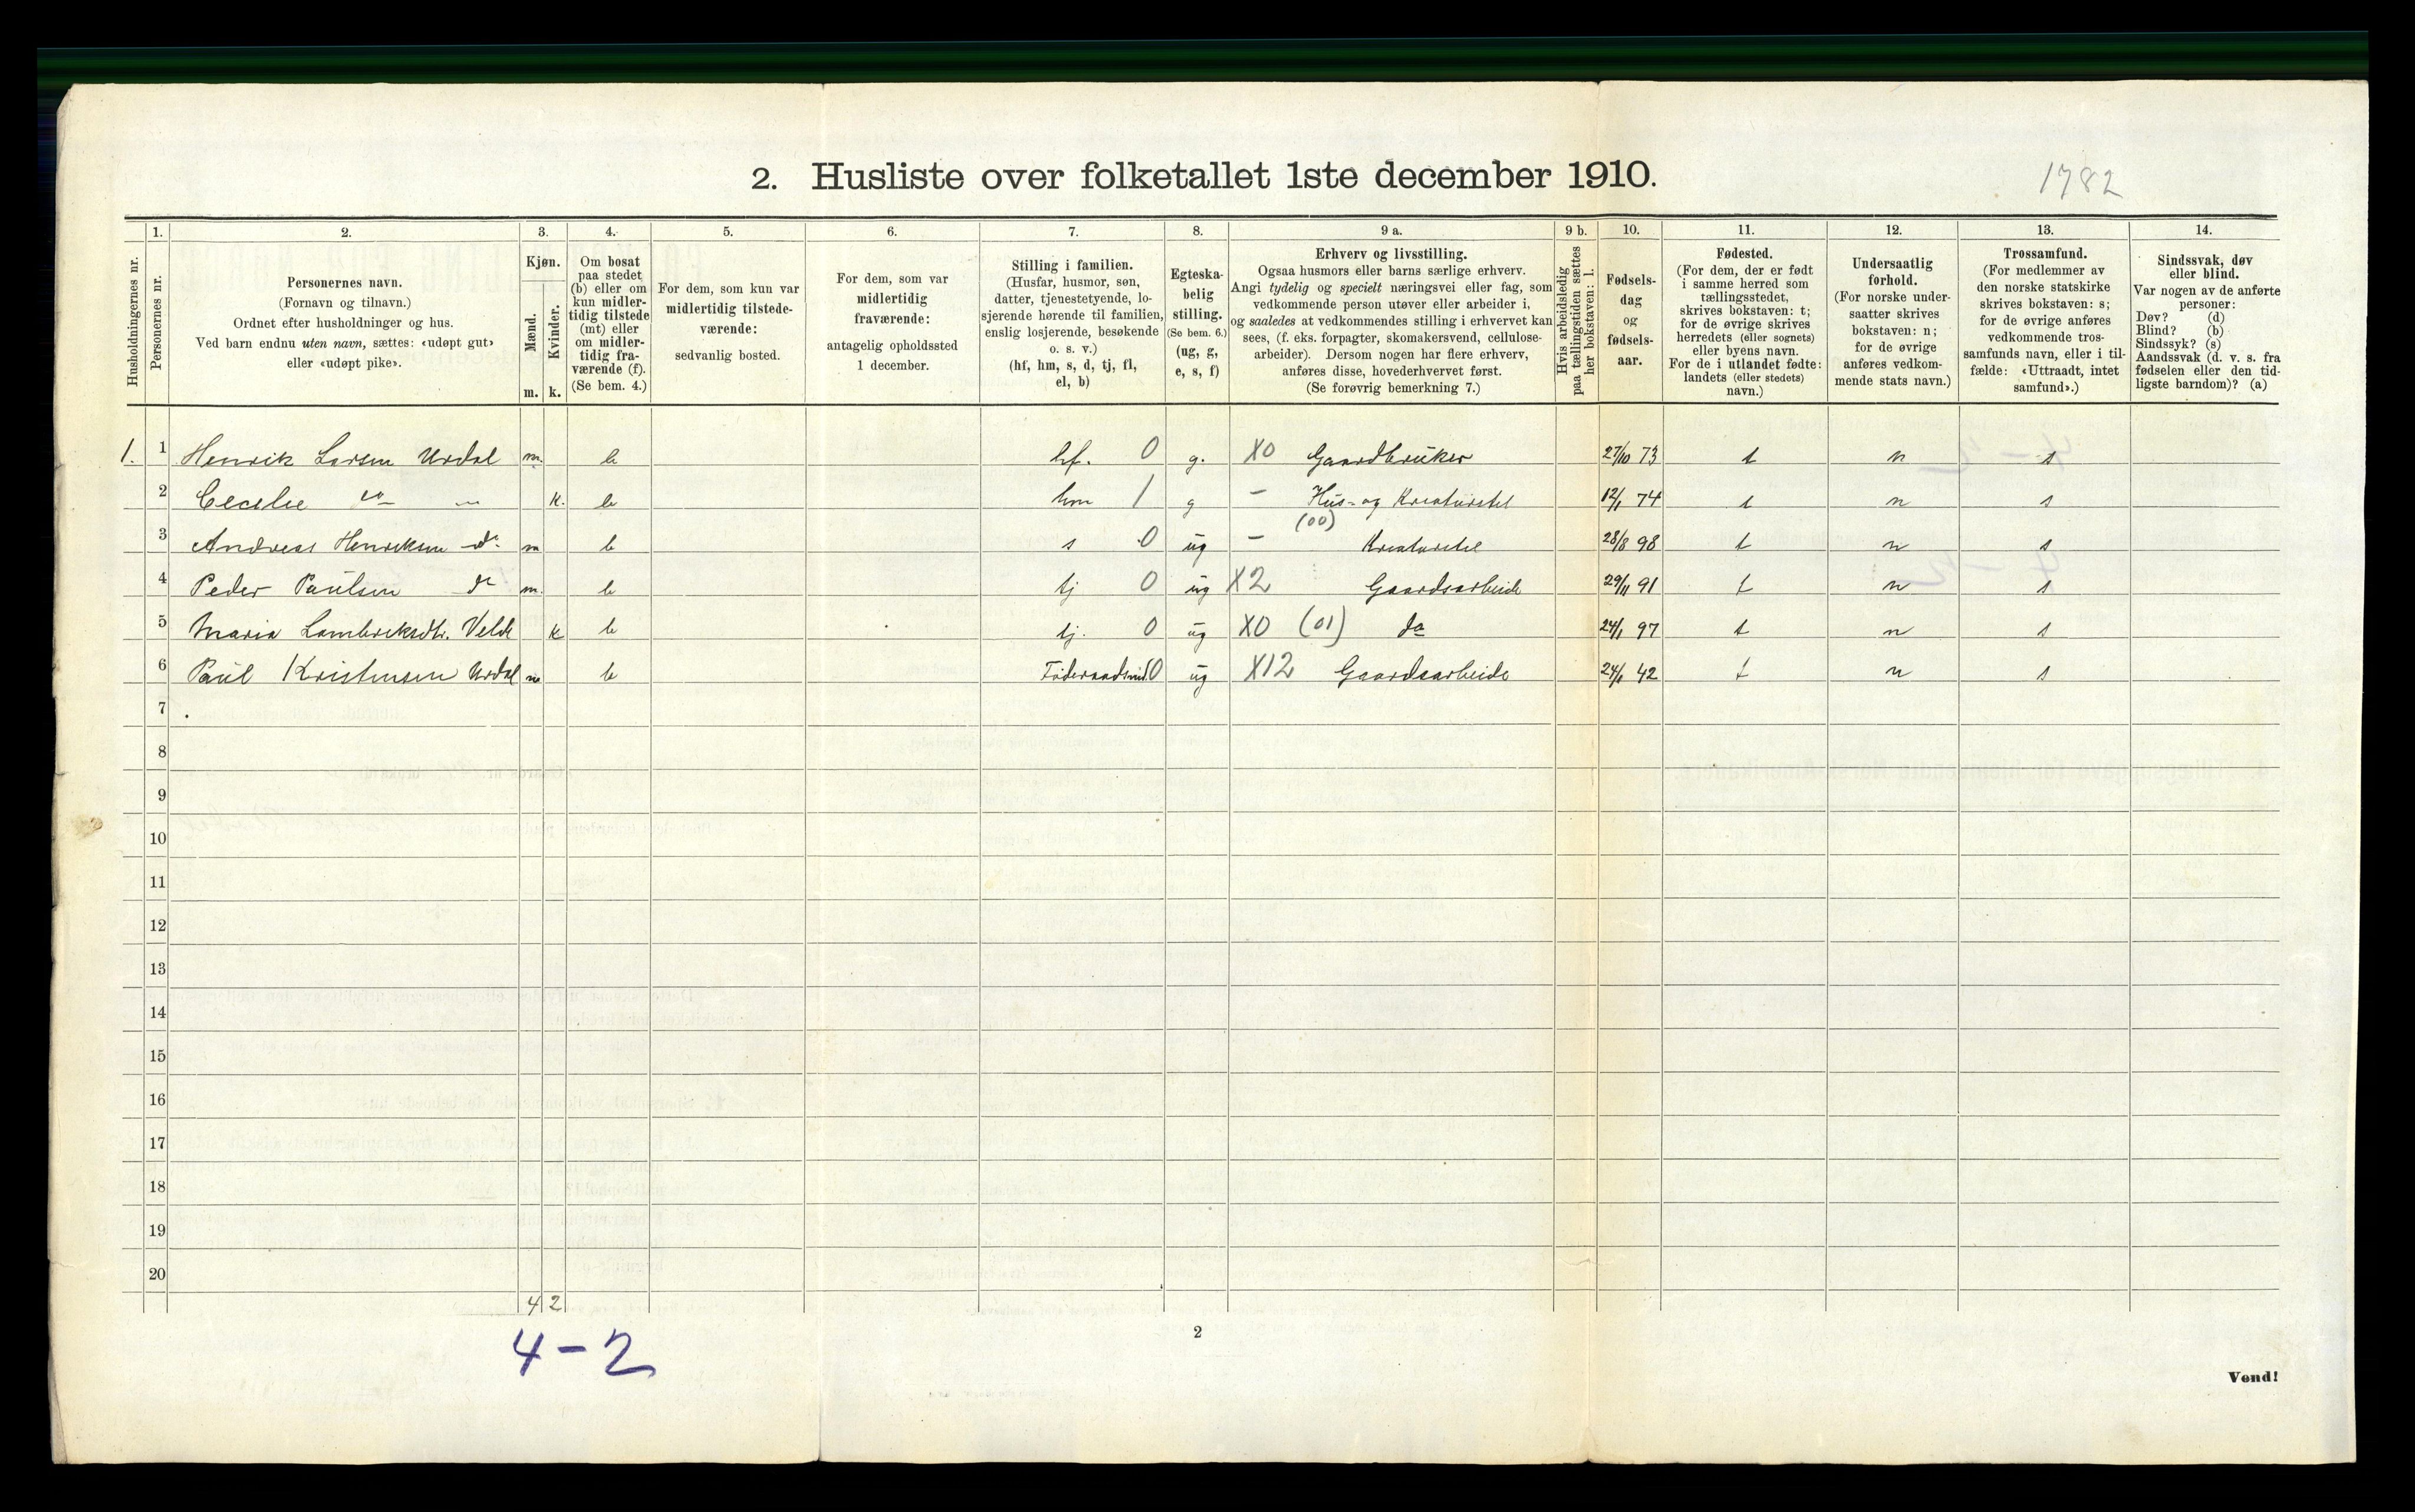 2. Husliste over folketallet 1ste december 1910.
1782
Husholdningernes nr.
1.
Personernes nr.
2.
Personernes navn.
(Fornavn og tilnavn.)
Ordnet efter husholdninger og hus.
Ved barn endnu uten navn, sættes: «udøpt gut»
eller «udøpt pike».
3.
Kjøn.
Mænd.
Kvinder.
m. k.
4.
Om bosat
paa stedet
(b) eller om
kun midler-
tidig tilstede
(mt) eller
om midler-
tidig fra-
værende (f).
(Se bem. 4.)
5.
For dem, som kun var
midlertidig tilstede-
værende:
sedvanlig bosted.
6.
For dem, som var
midlertidig
fraværende:
antagelig opholdssted
1 december.
7.
Stilling i familien.
(Husfar, husmor, søn,
datter, tjenestetyende, lo-
sjerende hørende til familien,
enslig losjerende, besøkende
o. s. v.)
(hf, hm, s, d, tj, fl,
el, b)
8.
Egteska-
belig
stilling.
(Se bem. 6.)
(ug, g,
e, s, f)
9 a.
Erhverv og livsstilling.
Ogsaa husmors eller barns særlige erhverv.
Angi tydelig og specielt næringsvei eller fag, som
vedkommende person utøver eller arbeider i,
og saaledes at vedkommendes stilling i erhvervet kan
sees, (f. eks. forpagter, skomakersvend, cellulose-
arbeider). Dersom nogen har flere erhverv,
anføres disse, hovederhvervet først.
(Se forøvrig bemerkning 7.)
9 b.
Hvis arbeidsledig
paa tællingstiden sættes
her bokstaven: l.
10.
Fødsels-
dag
og
fødsels-
aar.
11.
Fødested.
(For dem, der er født
i samme herred som
tællingsstedet,
skrives bokstaven: t;
for de øvrige skrives
herredets (eller sognets)
eller byens navn.
For de i utlandet fødte:
landets (eller stedets)
navn.)
12.
Undersaatlig
forhold.
(For norske under-
saatter skrives
bokstaven: n;
for de øvrige
anføres vedkom-
mende stats navn.)
13.
Trossamfund.
(For medlemmer av
den norske statskirke
skrives bokstaven: s;
for de øvrige anføres
vedkommende tros-
samfunds navn, eller i til-
fælde: «Uttraadt, intet
samfund».)
14.
Sindssvak, døv
eller blind.
Var nogen av de anførte
personer:
Døv? (d)
Blind? (b)
Sindssyk? (s)
Aandssvak (d. v. s. fra
fødselen eller den tid-
ligste barndom)? (a)
1. 1 Henrik Larsen Urdal m. b hf. 0 g. X0 Gaardbruker 27/10 73 t n s
2 Cecelie do — k. b hm 1 g – Hus- og Kreaturstel 12/1 74 t n s
(00)
3 Andreas Henriksen do m b s 0 ug – Kreaturstel 28/8 98 t n s
4 Peder Paulsen do m. b tj 0 ug X2 Gaardsarbeide 29/11 91 t n s
5 Maria Lambriksdtr. Velde k b tj. 0 ug X0 (01) do 24/1 97 t n s
6 Paul Kristensen Urdal m b Föderaadsmd. 0 ug X12 Gaardsarbeide 24/1 42 t n s
7
8
9
10
11
12
13
14
15
16
17
18
19
20
4 2
4-2
2
Vend!